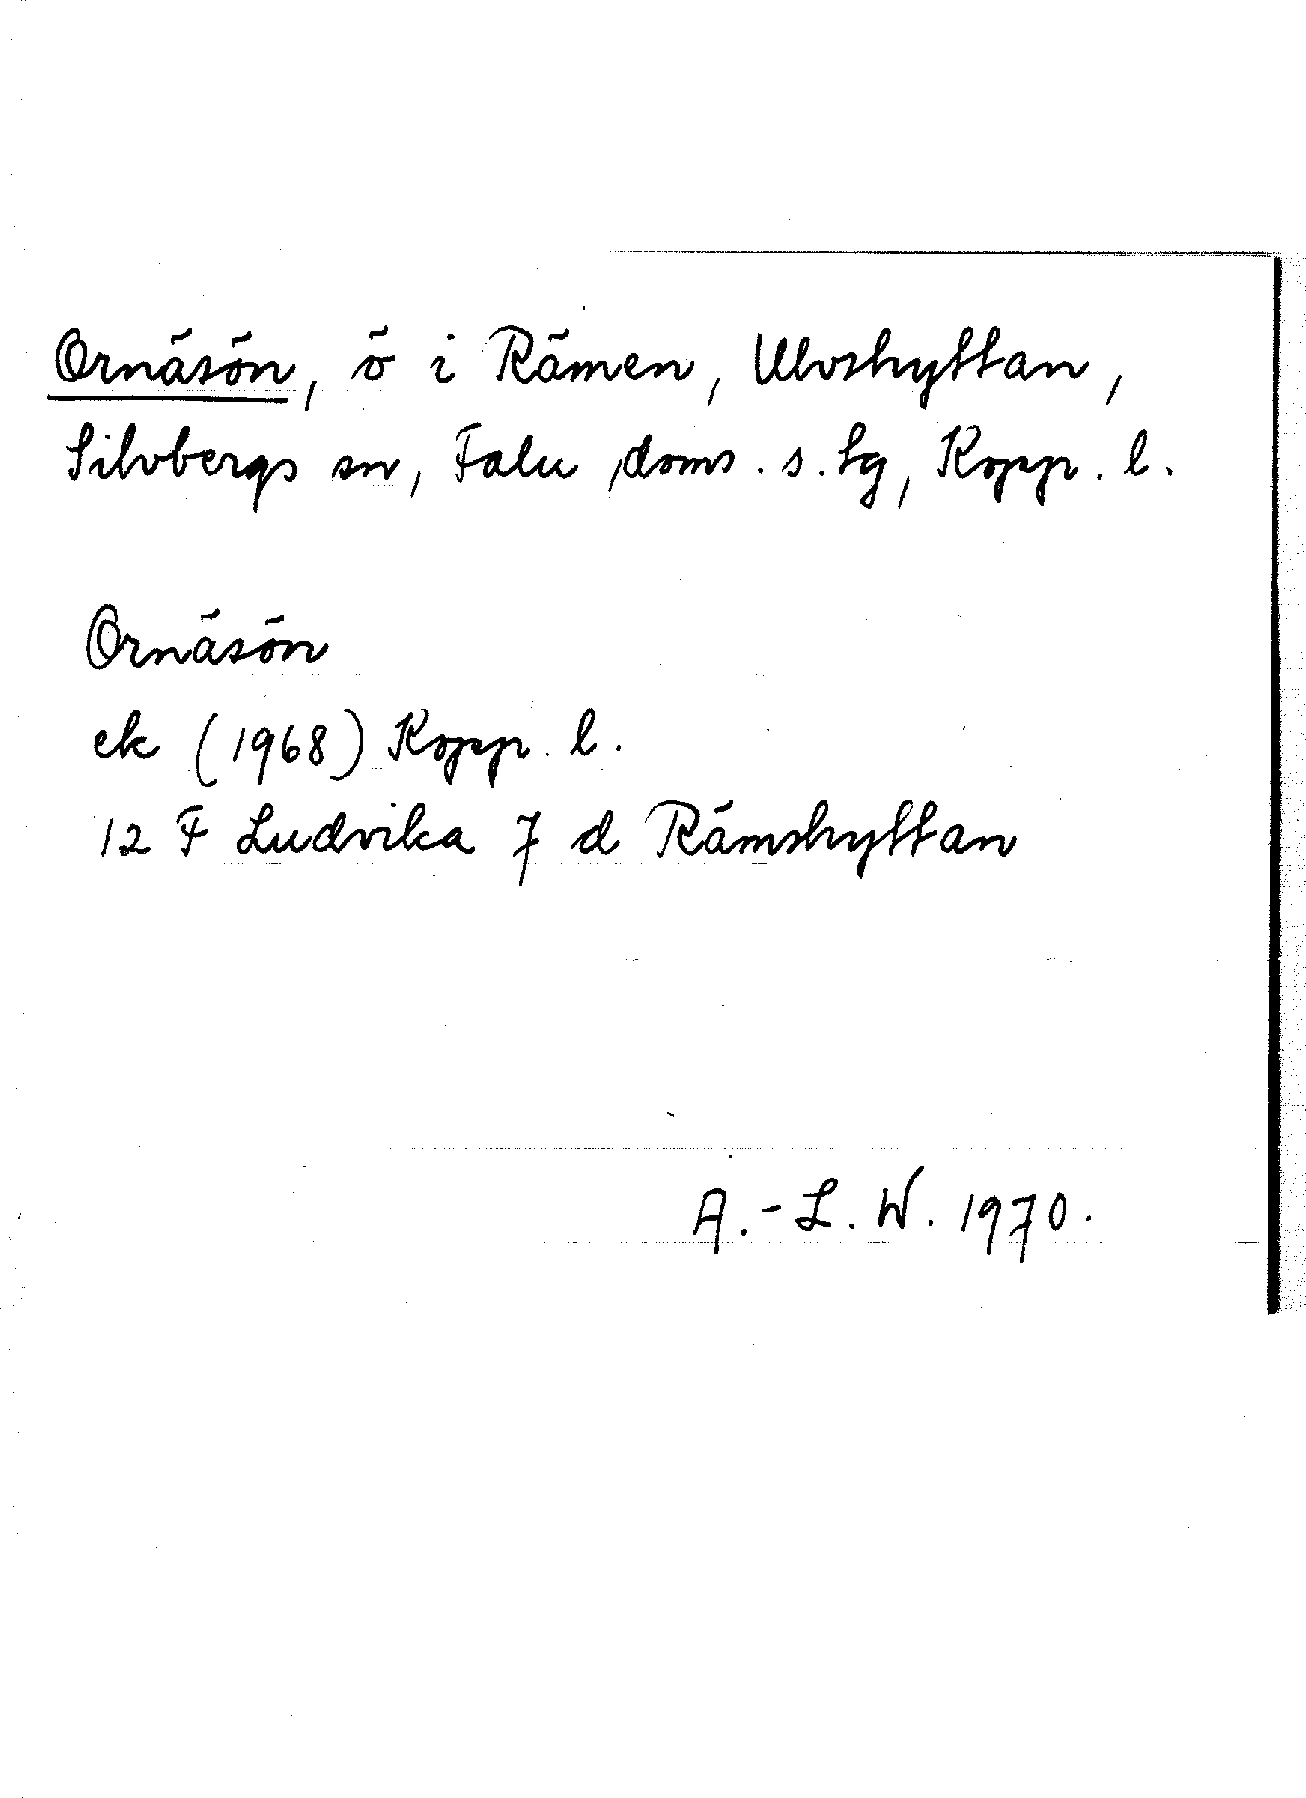 Ornäsön, ö i Rämen, Ulvshyttan,
Silvbergs sn, Falu doms. s. tg, Kopp. l.
Ornäsön
ek (1968) Kopp. l.
12 F Ludvika 7 d Rämshyttan
A.-L. W. 1970.